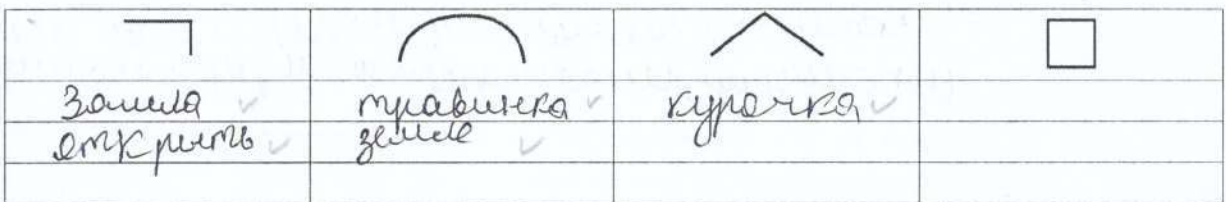 травинка курочка
открыть земле